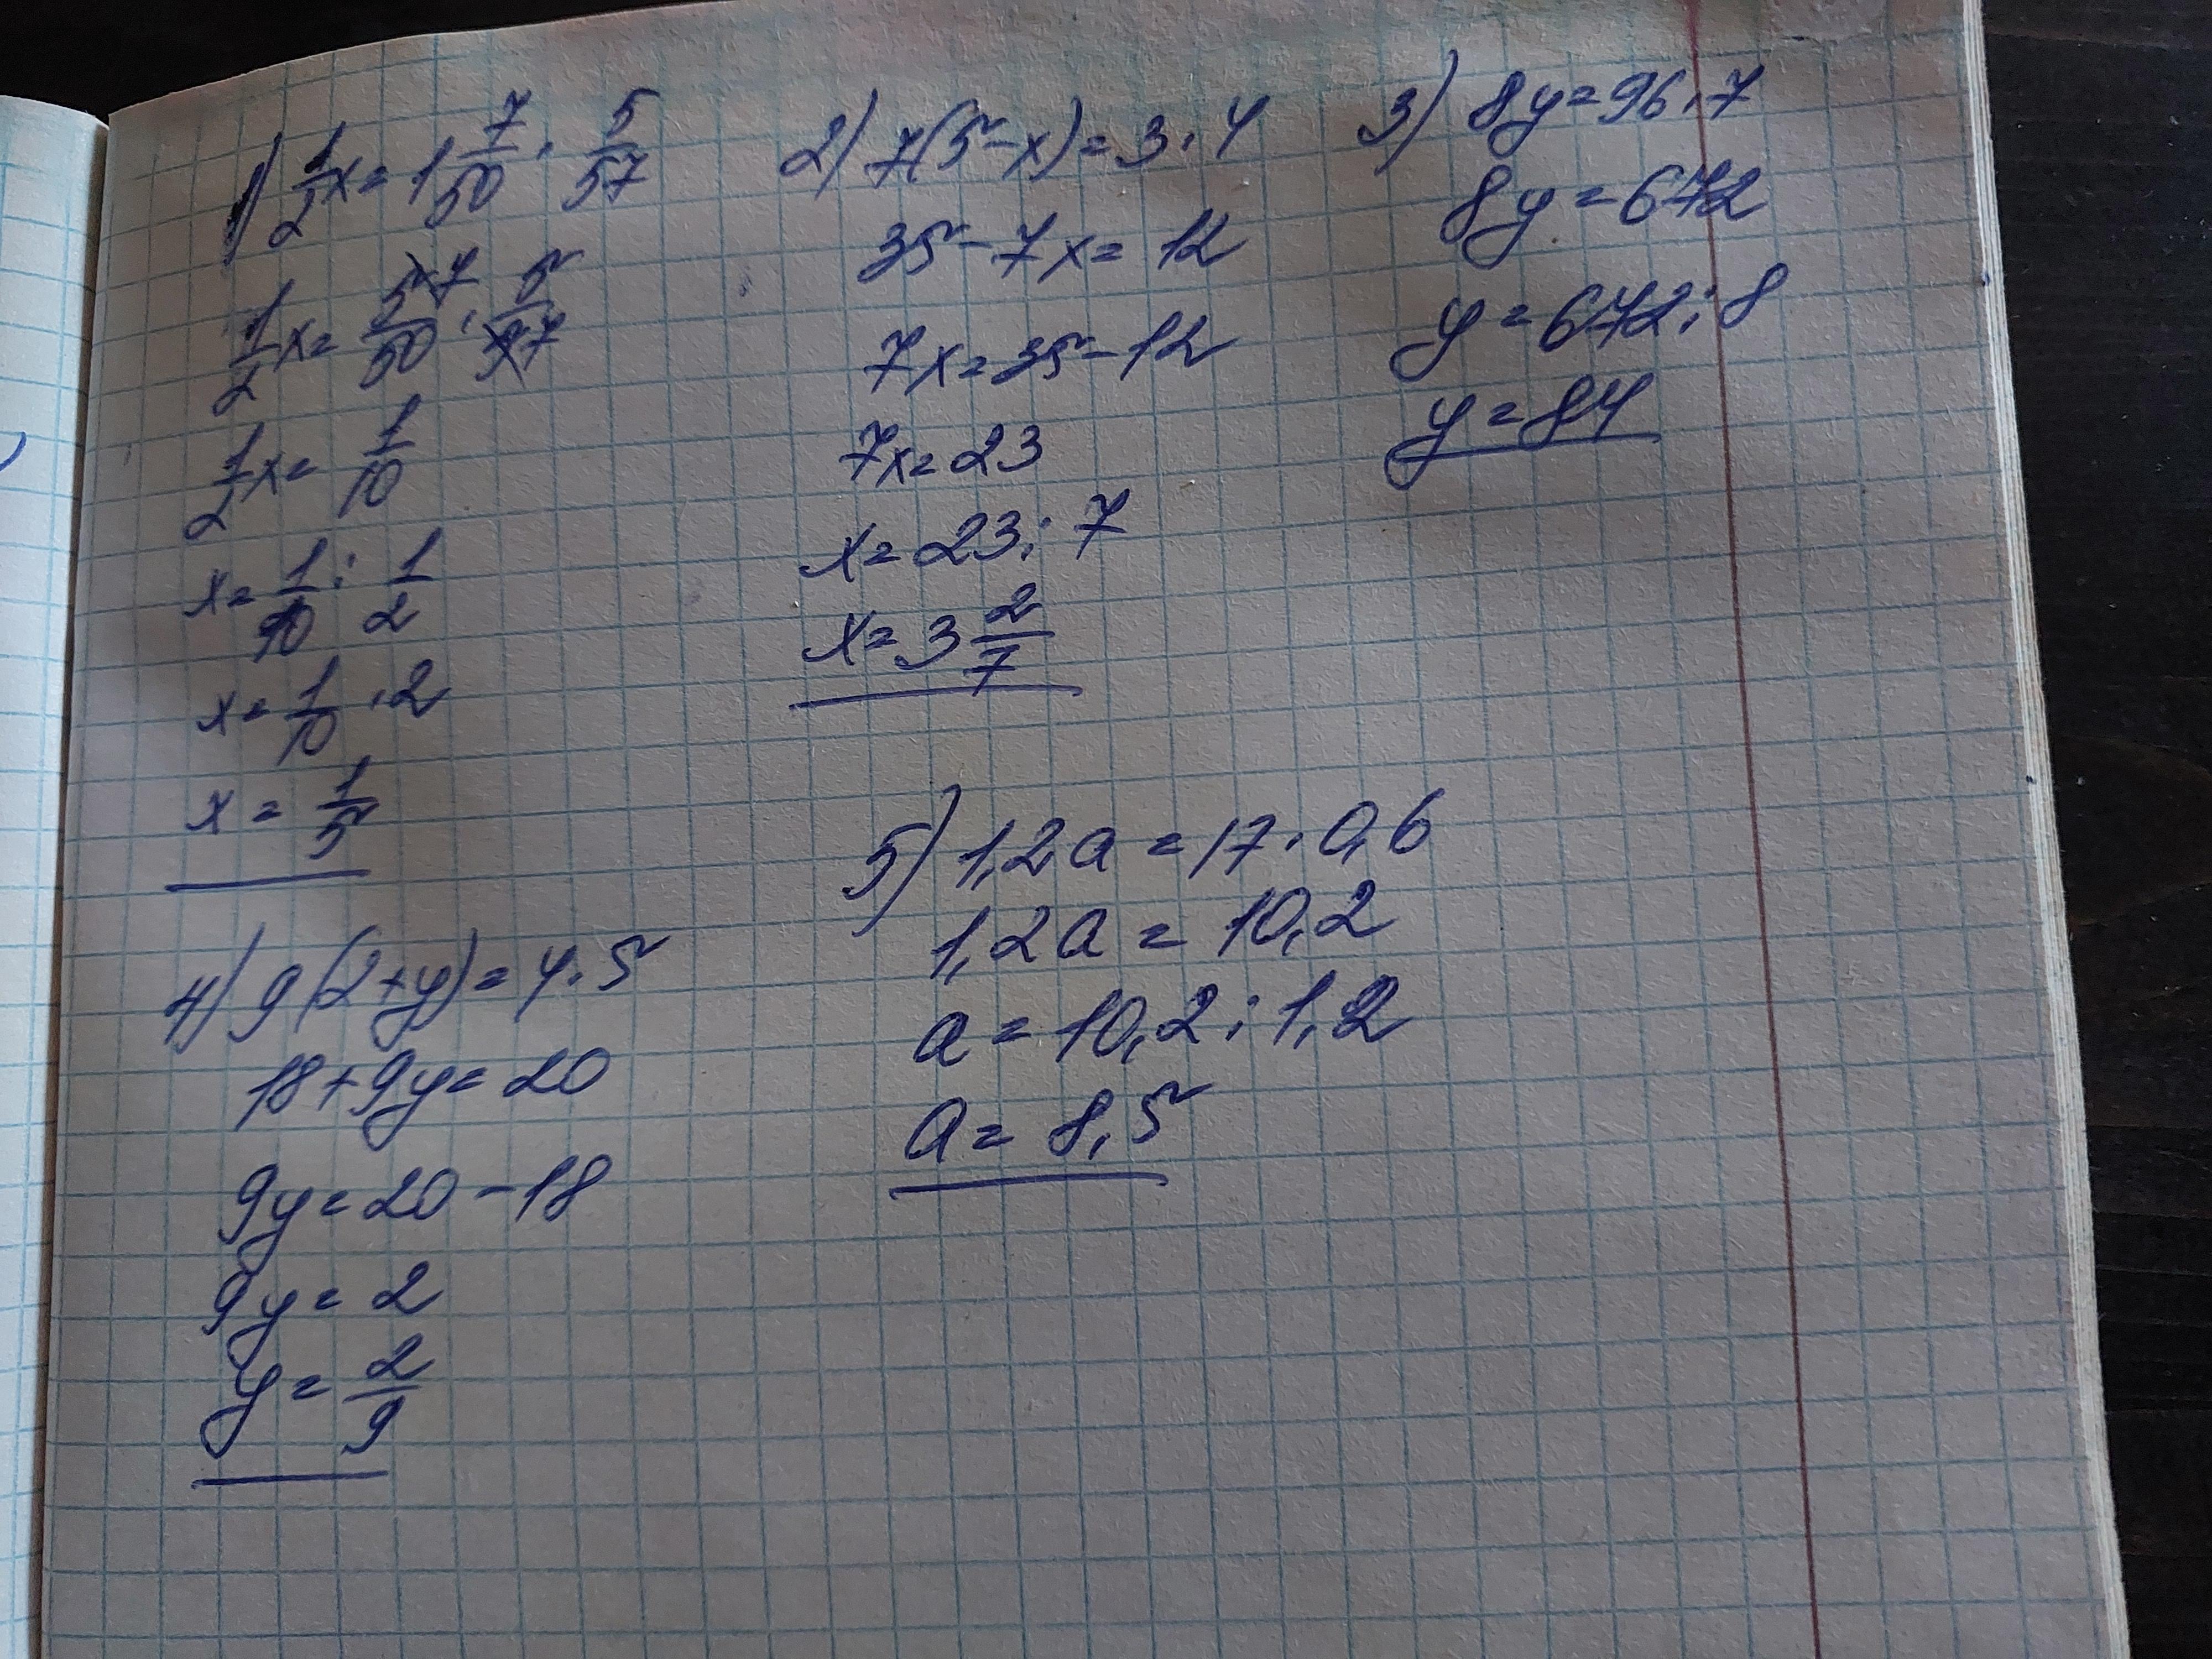 1) 1/2 x = 1 7/50 · 5/57
1/2 x = 57/50 · 5/57
1/2 x = 1/10
x = 1/10 : 1/2
x = 1/10 · 2
x = 1/5
2) 7(5-x) = 3 · 4
35 - 7x = 12
7x = 35 - 12
7x = 23
x = 23 : 7
x = 3 2/7
3) 8y = 96 · 7
8y = 672
y = 672 : 8
y = 84
4) 9(2+y) = 4 · 5
18 + 9y = 20
9y = 20 - 18
9y = 2
y = 2/9
5) 1,2a = 17 · 0,6
1,2a = 10,2
a = 10,2 : 1,2
a = 8,5